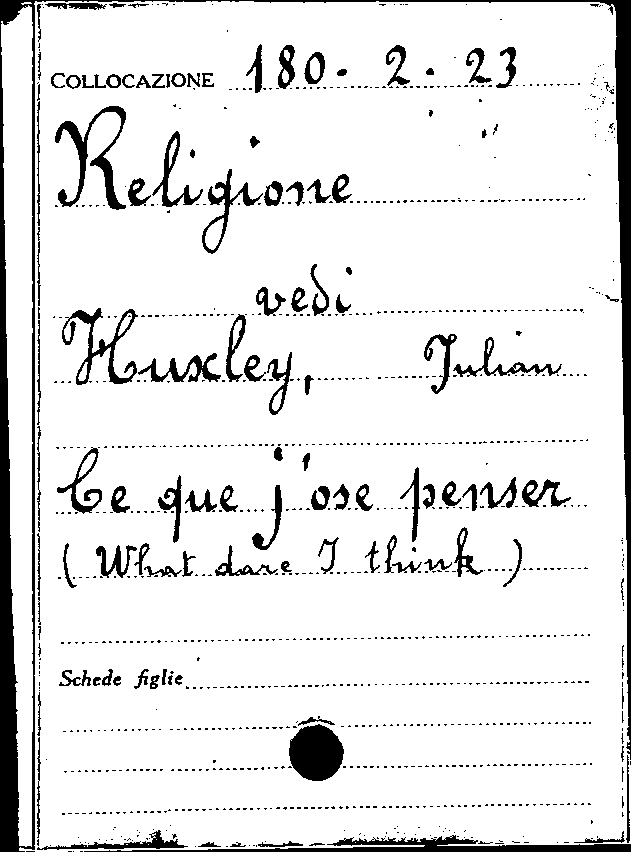 COLLOCAZIONE 180. 2. 23
Religione
vedi
Huxley, Julian
Ce que j'ose penser
(What dare I think)
Schede figlie